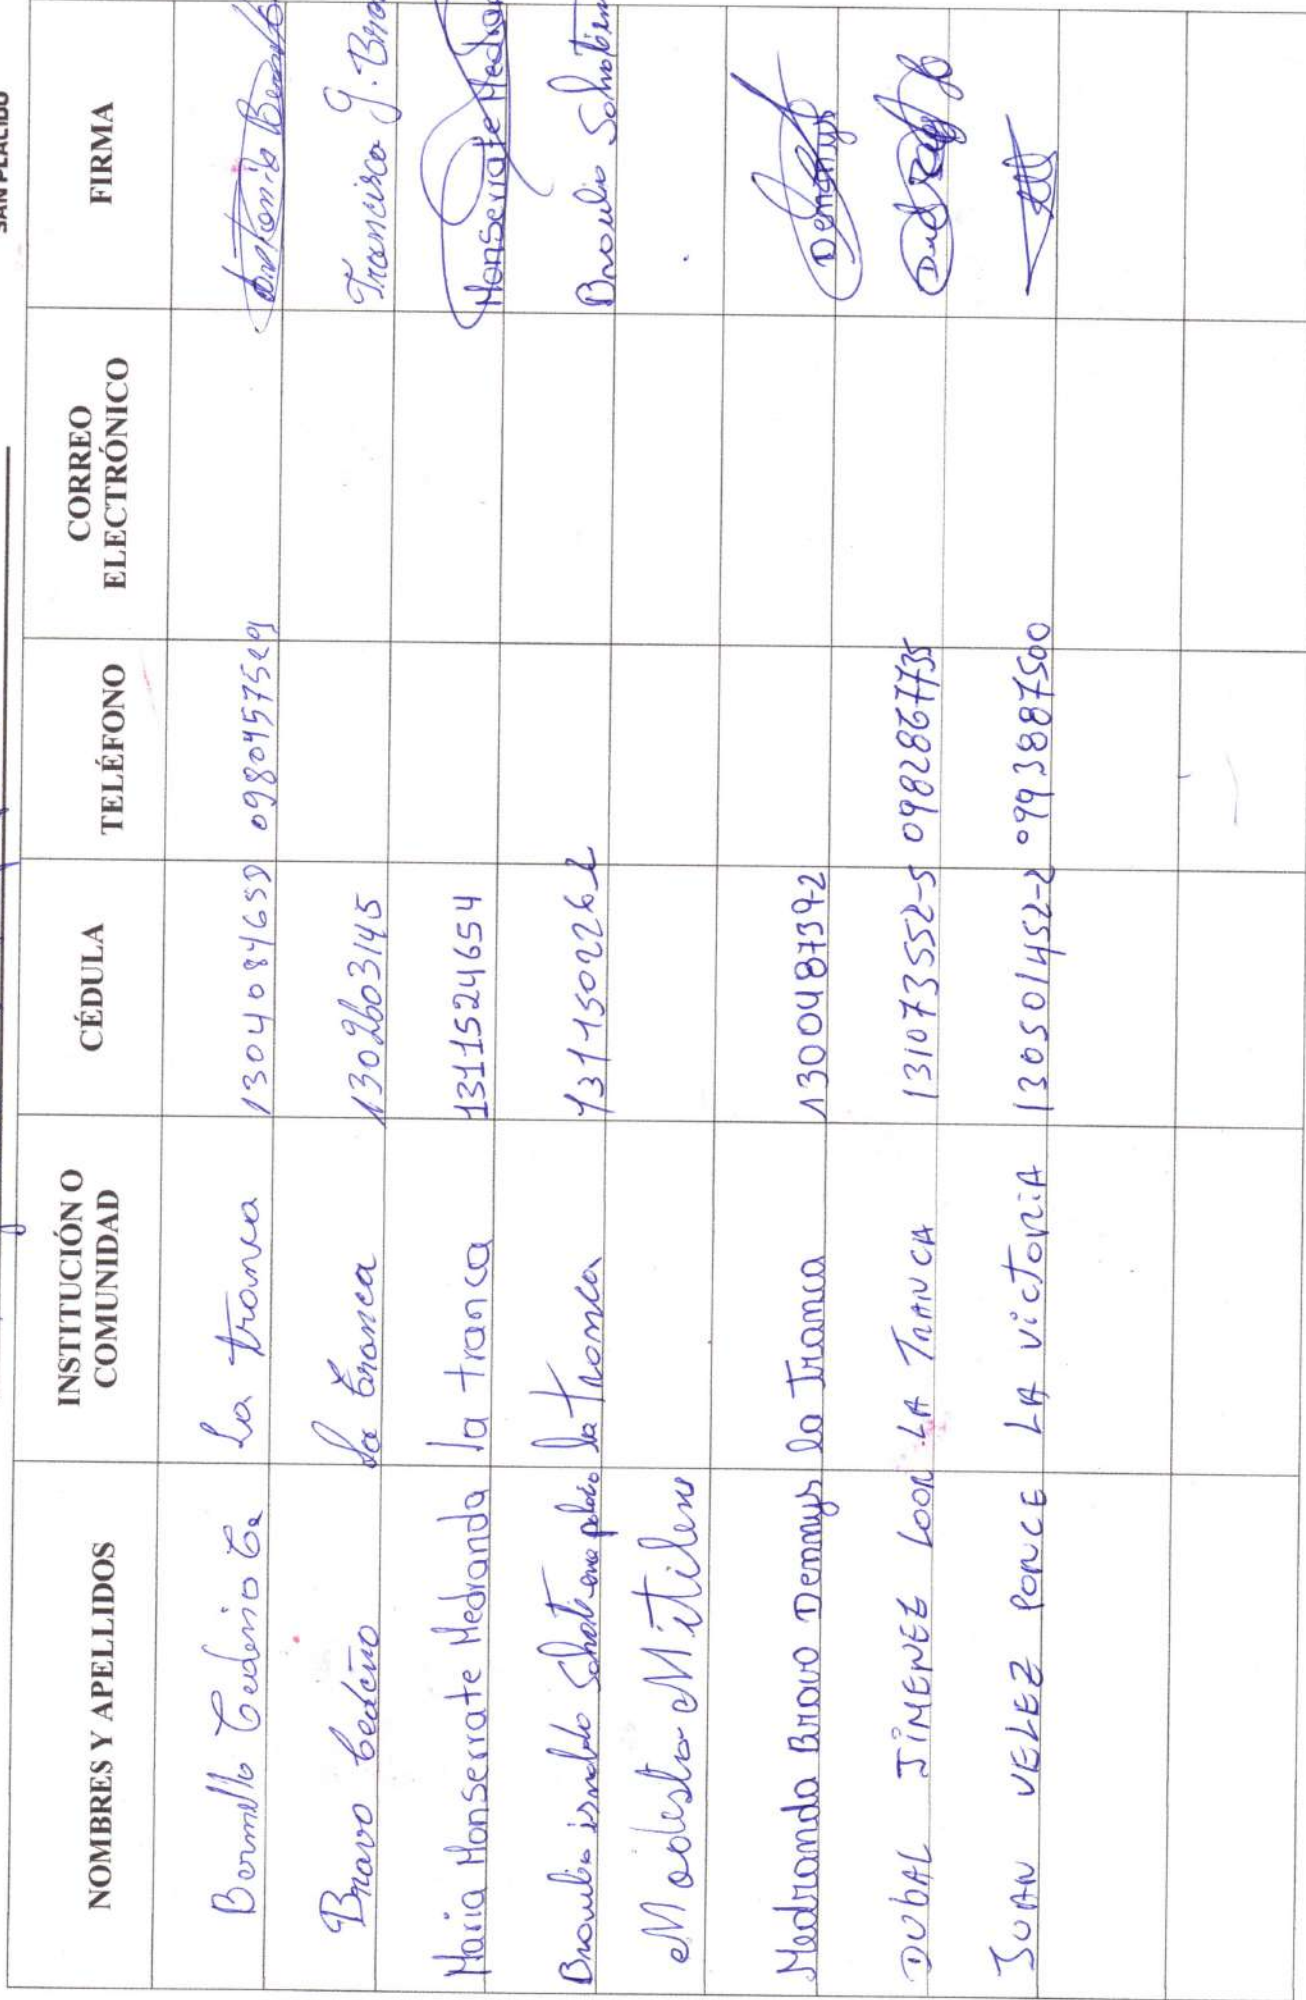 SAN PLÁCIDO
NOMBRES Y APELLIDOS INSTITUCIÓN O COMUNIDAD CÉDULA TELÉFONO CORREO ELECTRÓNICO FIRMA
Bermello Cedeño La tranca 0980457529
Bravo Cedeño La tranca 1302603145 Francisco J. Bra
Maria Monserrate Medranda la tranca 1311524654 Monserrate Medra
Braulio la tranca 131150226 Braulio
Modesto Mitilene
Medranda Bravo Dennys la Tranca 130048739-2 Dennys
DUBAL JIMENEZ LOOR LA TRANCA 131073552-5 0982867735
JUAN VELEZ PONCE LA VICTORIA 130501452-2 0993887500